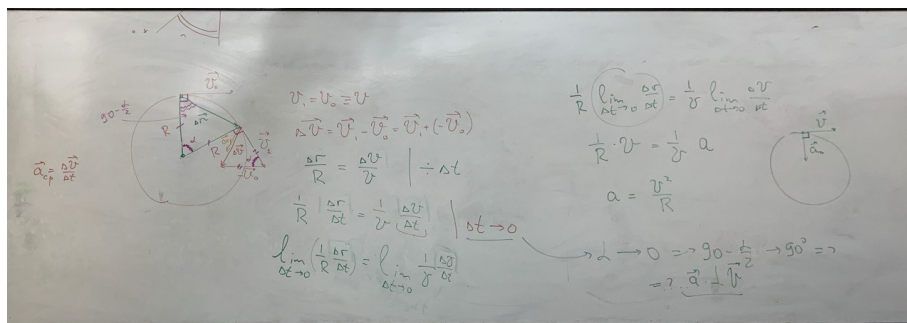 V⃗₀
90-α/2
Δr⃗
R
α
R
V⃗₁
ΔV⃗
-V⃗₀
a⃗ср = ΔV⃗/Δt
V₁ = V₀ ≡ V
ΔV⃗ = V⃗₁ - V⃗₀ = V⃗₁ + (-V⃗₀)
Δr/R = ΔV/V | ÷ Δt
1/R |Δr/Δt| = 1/V |ΔV/Δt| | Δt → 0
lim Δt→0 (1/R |Δr/Δt|) = lim Δt→0 1/V |ΔV/Δt|
1/R lim Δt→0 Δr/Δt = 1/V lim Δt→0 ΔV/Δt
1/R · V = 1/V a
a = V²/R
V⃗
a⃗
α → 0 => 90 - α/2 → 90° =>
=> a⃗ ⊥ V⃗